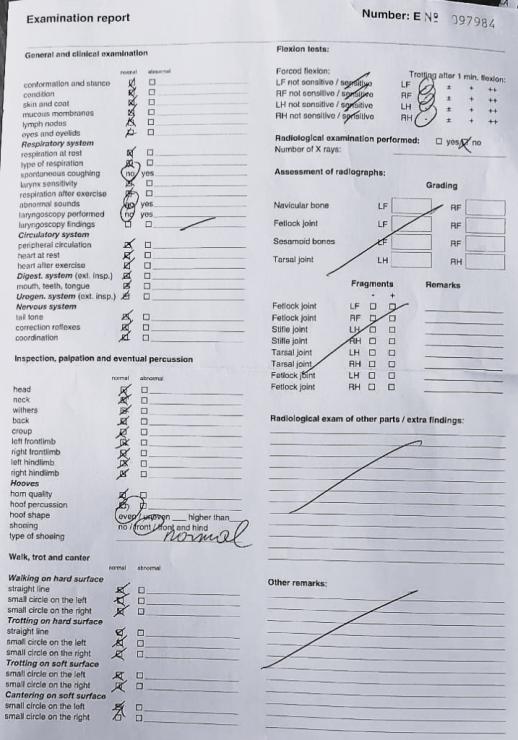 Examination report
Number: E Nº 097984
General and clinical examination
normal abnormal
conformation and stance
condition
skin and coat
mucous membranes
lymph nodes
eyes and eyelids
Respiratory system
respiration at rest
type of respiration
spontaneous coughing no yes
larynx sensitivity
respiration after exercise
abnormal sounds no yes
laryngoscopy performed no yes
laryngoscopy findings
Circulatory system
peripheral circulation
heart at rest
heart after exercise
Digest. system (ext. insp.)
mouth, teeth, tongue
Urogen. system (ext. insp.)
Nervous system
tail tone
correction reflexes
coordination
Inspection, palpation and eventual percussion
normal abnormal
head
neck
withers
back
croup
left frontlimb
right frontlimb
left hindlimb
right hindlimb
Hooves
horn quality
hoof percussion
hoof shape even / uneven ___ higher than
shoeing no / front / front and hind
type of shoeing normal
Walk, trot and canter
normal abnormal
Walking on hard surface
straight line
small circle on the left
small circle on the right
Trotting on hard surface
straight line
small circle on the left
small circle on the right
Trotting on soft surface
small circle on the left
small circle on the right
Cantering on soft surface
small circle on the left
small circle on the right
Flexion tests:
Forced flexion: Trotting after 1 min. flexion:
LF not sensitive / sensitive LF - ± + ++
RF not sensitive / sensitive RF - ± + ++
LH not sensitive / sensitive LH - ± + ++
RH not sensitive / sensitive RH - ± + ++
Radiological examination performed: yes no
Number of X rays:
Assessment of radiographs:
Grading
Navicular bone LF RF
Fetlock joint LF RF
Sesamoid bones LF RF
Tarsal joint LH RH
Fragments Remarks
- +
Fetlock joint LF
Fetlock joint RF
Stifle joint LH
Stifle joint RH
Tarsal joint LH
Tarsal joint RH
Fetlock joint LH
Fetlock joint RH
Radiological exam of other parts / extra findings:
Other remarks: